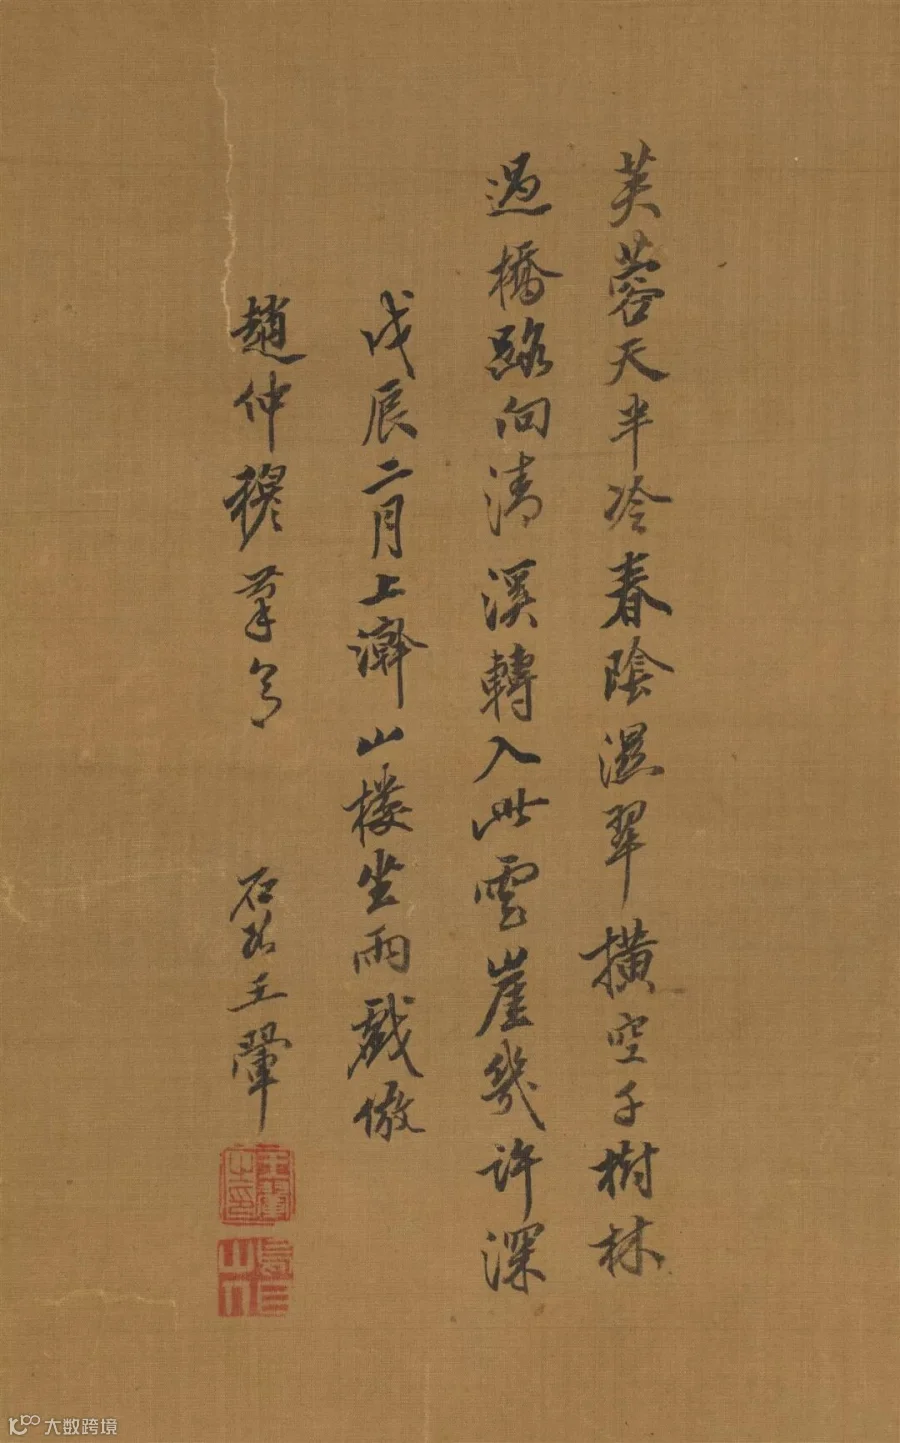 芙蓉天半冷春陰濕翠橫空千樹林
過橋路向清溪轉入此雲崖幾許深
戊辰二月上澣山樓坐雨戲倣
趙仲穆筆意 石谷王翬
王翬之印
烏目山人
大数跨境